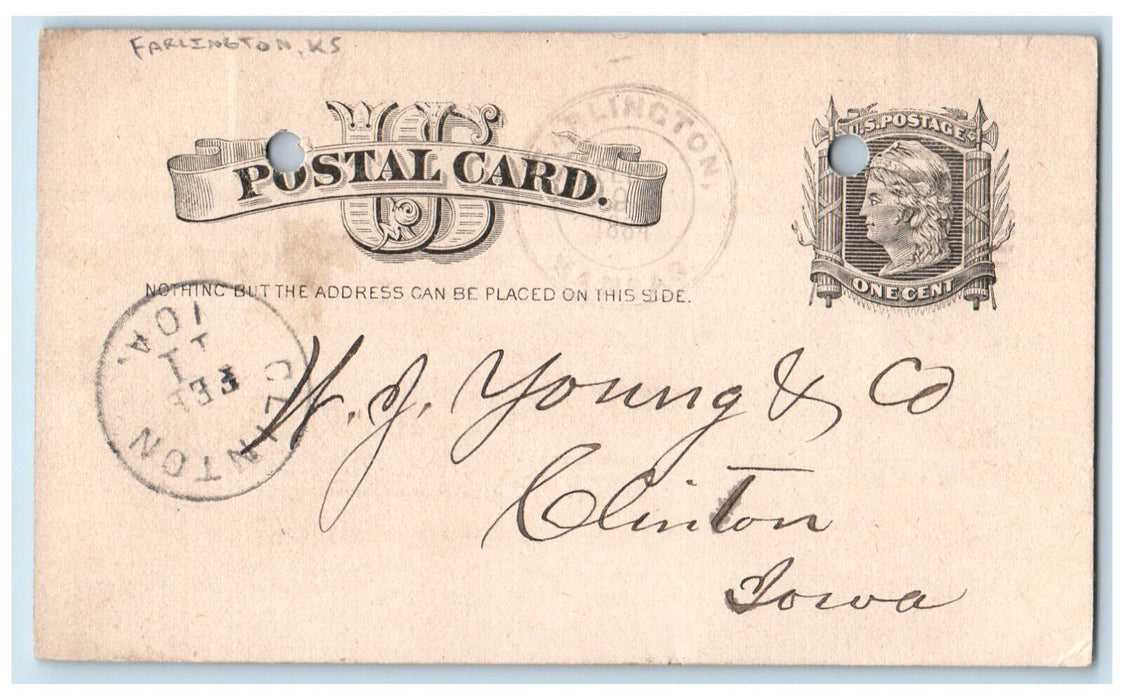 FARLINGTON, KS
US
POSTAL CARD.
U.S. POSTAGE
ONE CENT
LINGTON,
KANSAS
NOTHING BUT THE ADDRESS CAN BE PLACED ON THIS SIDE.
CLINTON
IOA.
FEB
11
W. J. Young & Co
Clinton
Iowa